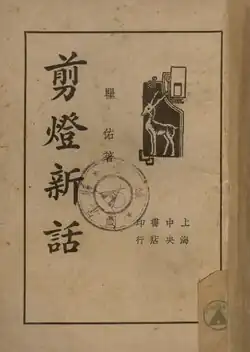 剪燈新話
瞿佑著
上海
中央
書店
印行